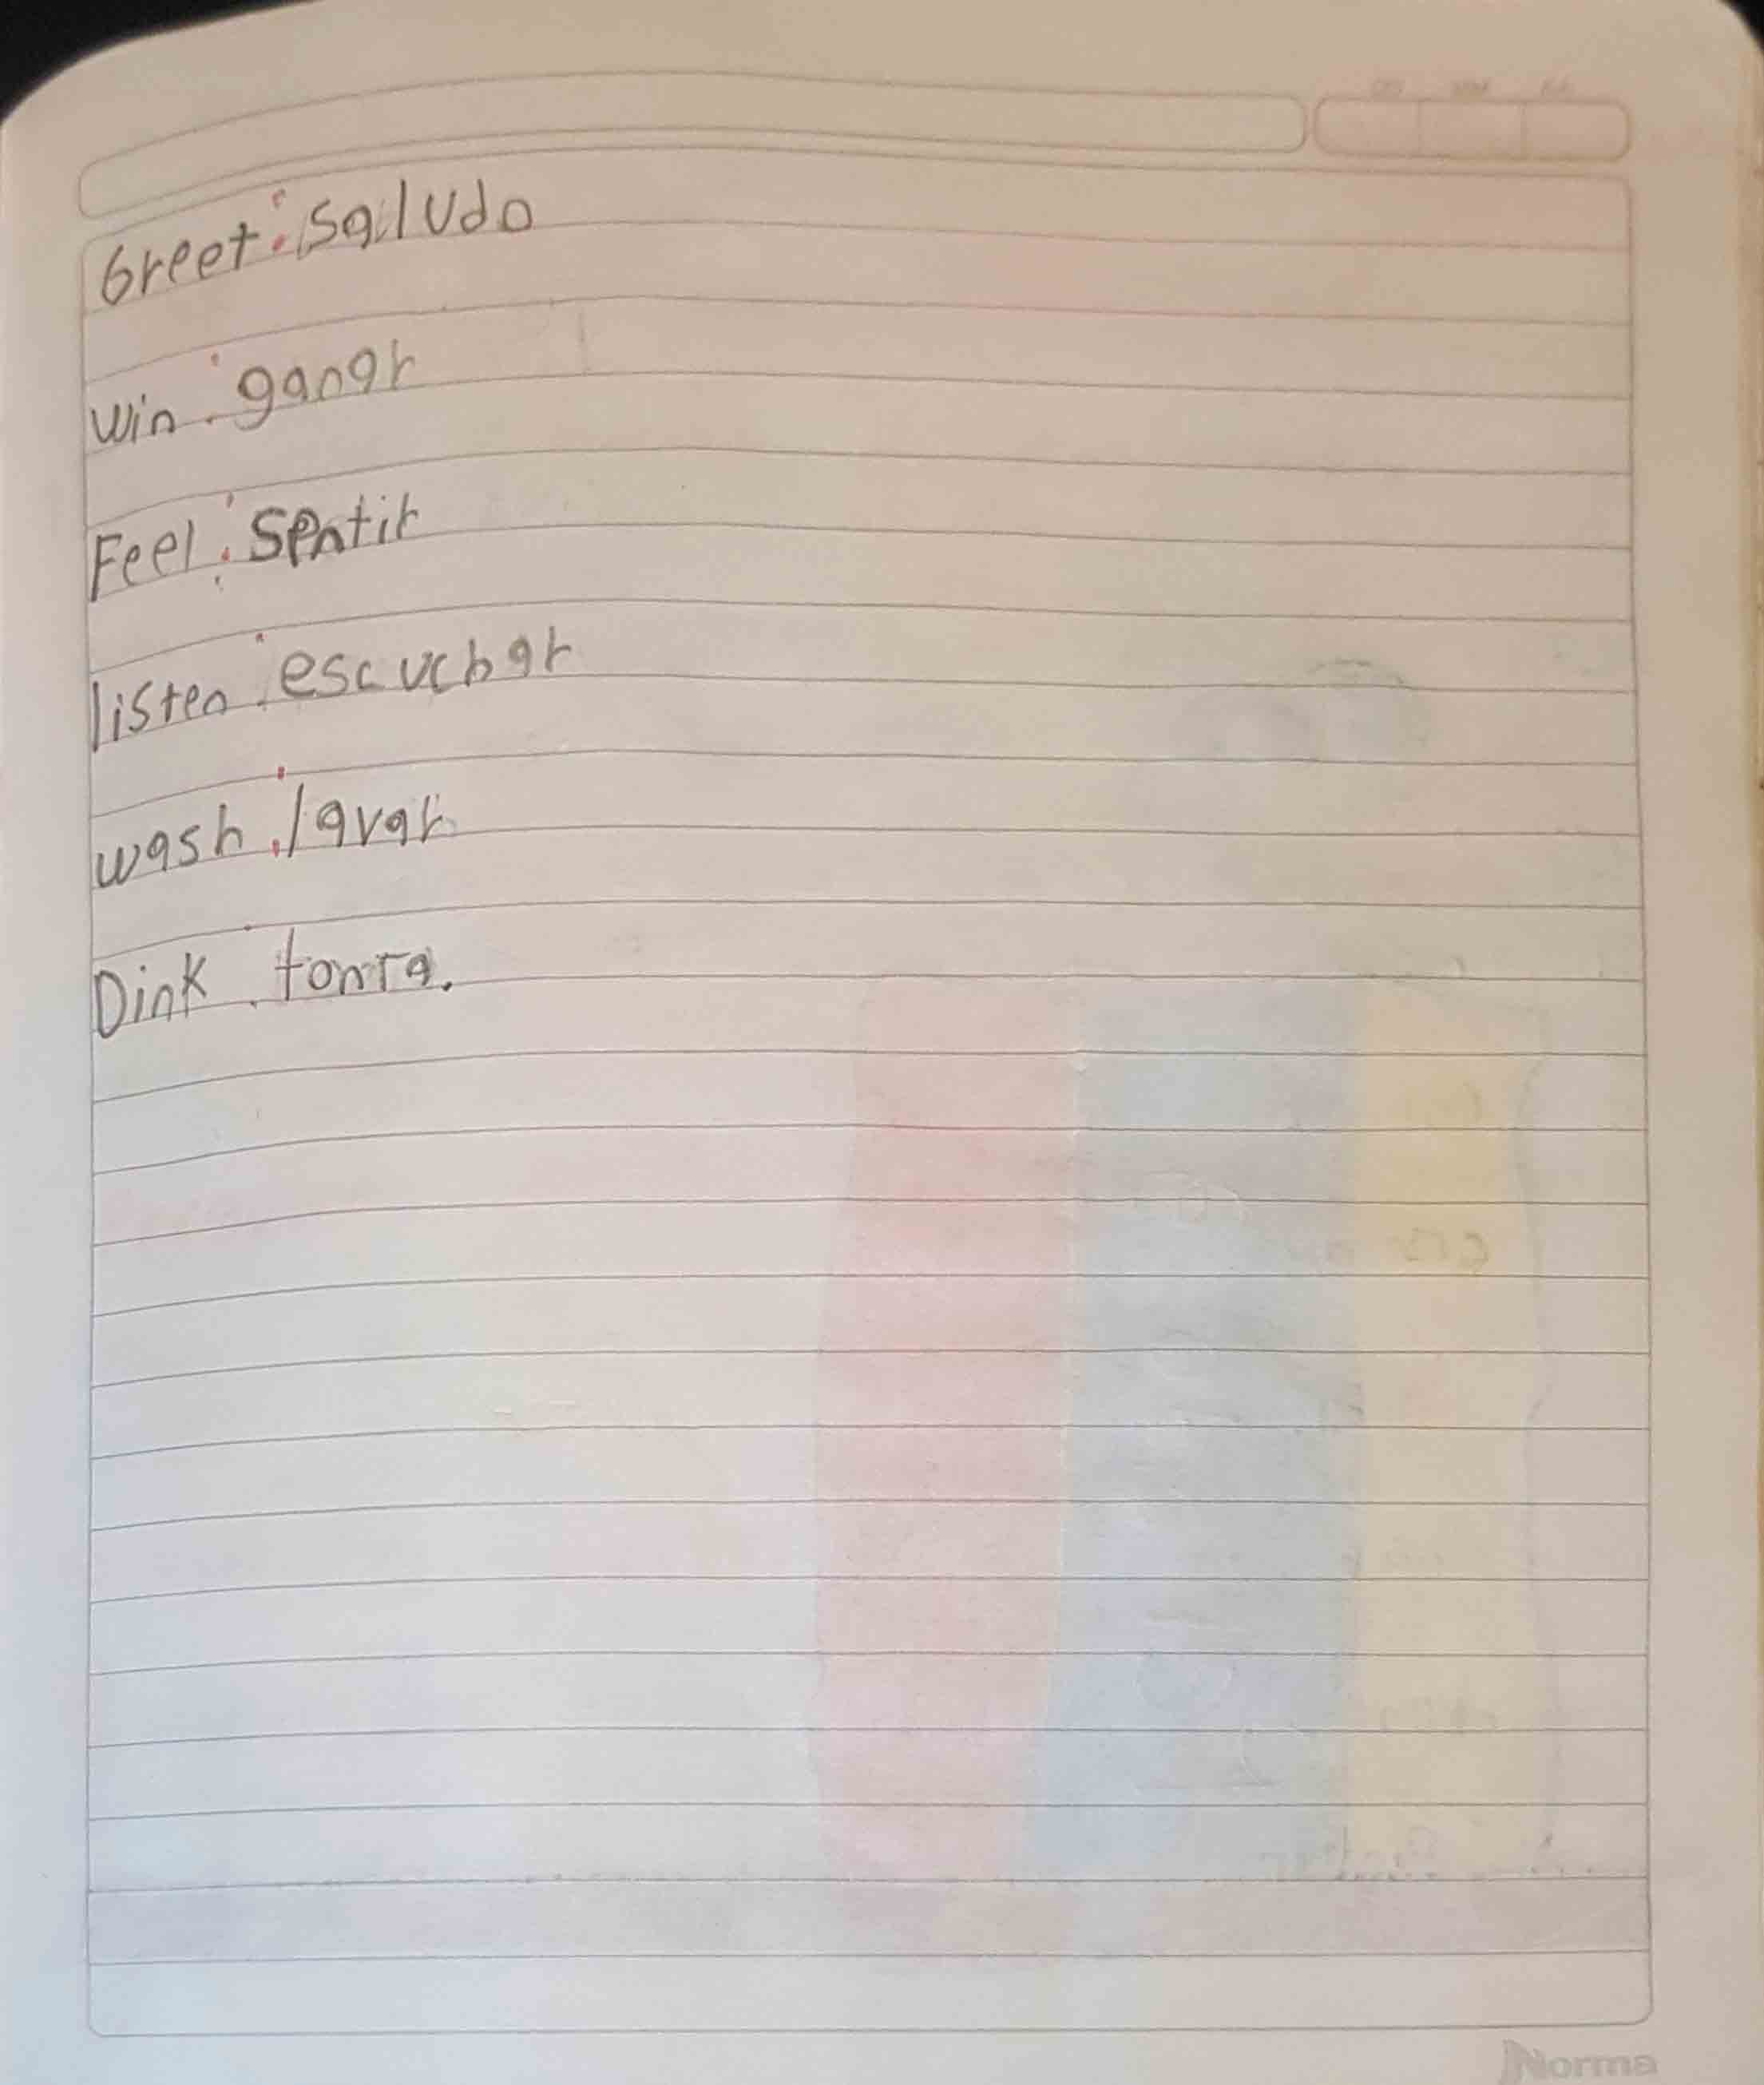 Greet: Saludo
Win: ganar
Feel: Sentir
listen: escuchar
wash: lavar
Dink: tomra.
Norma